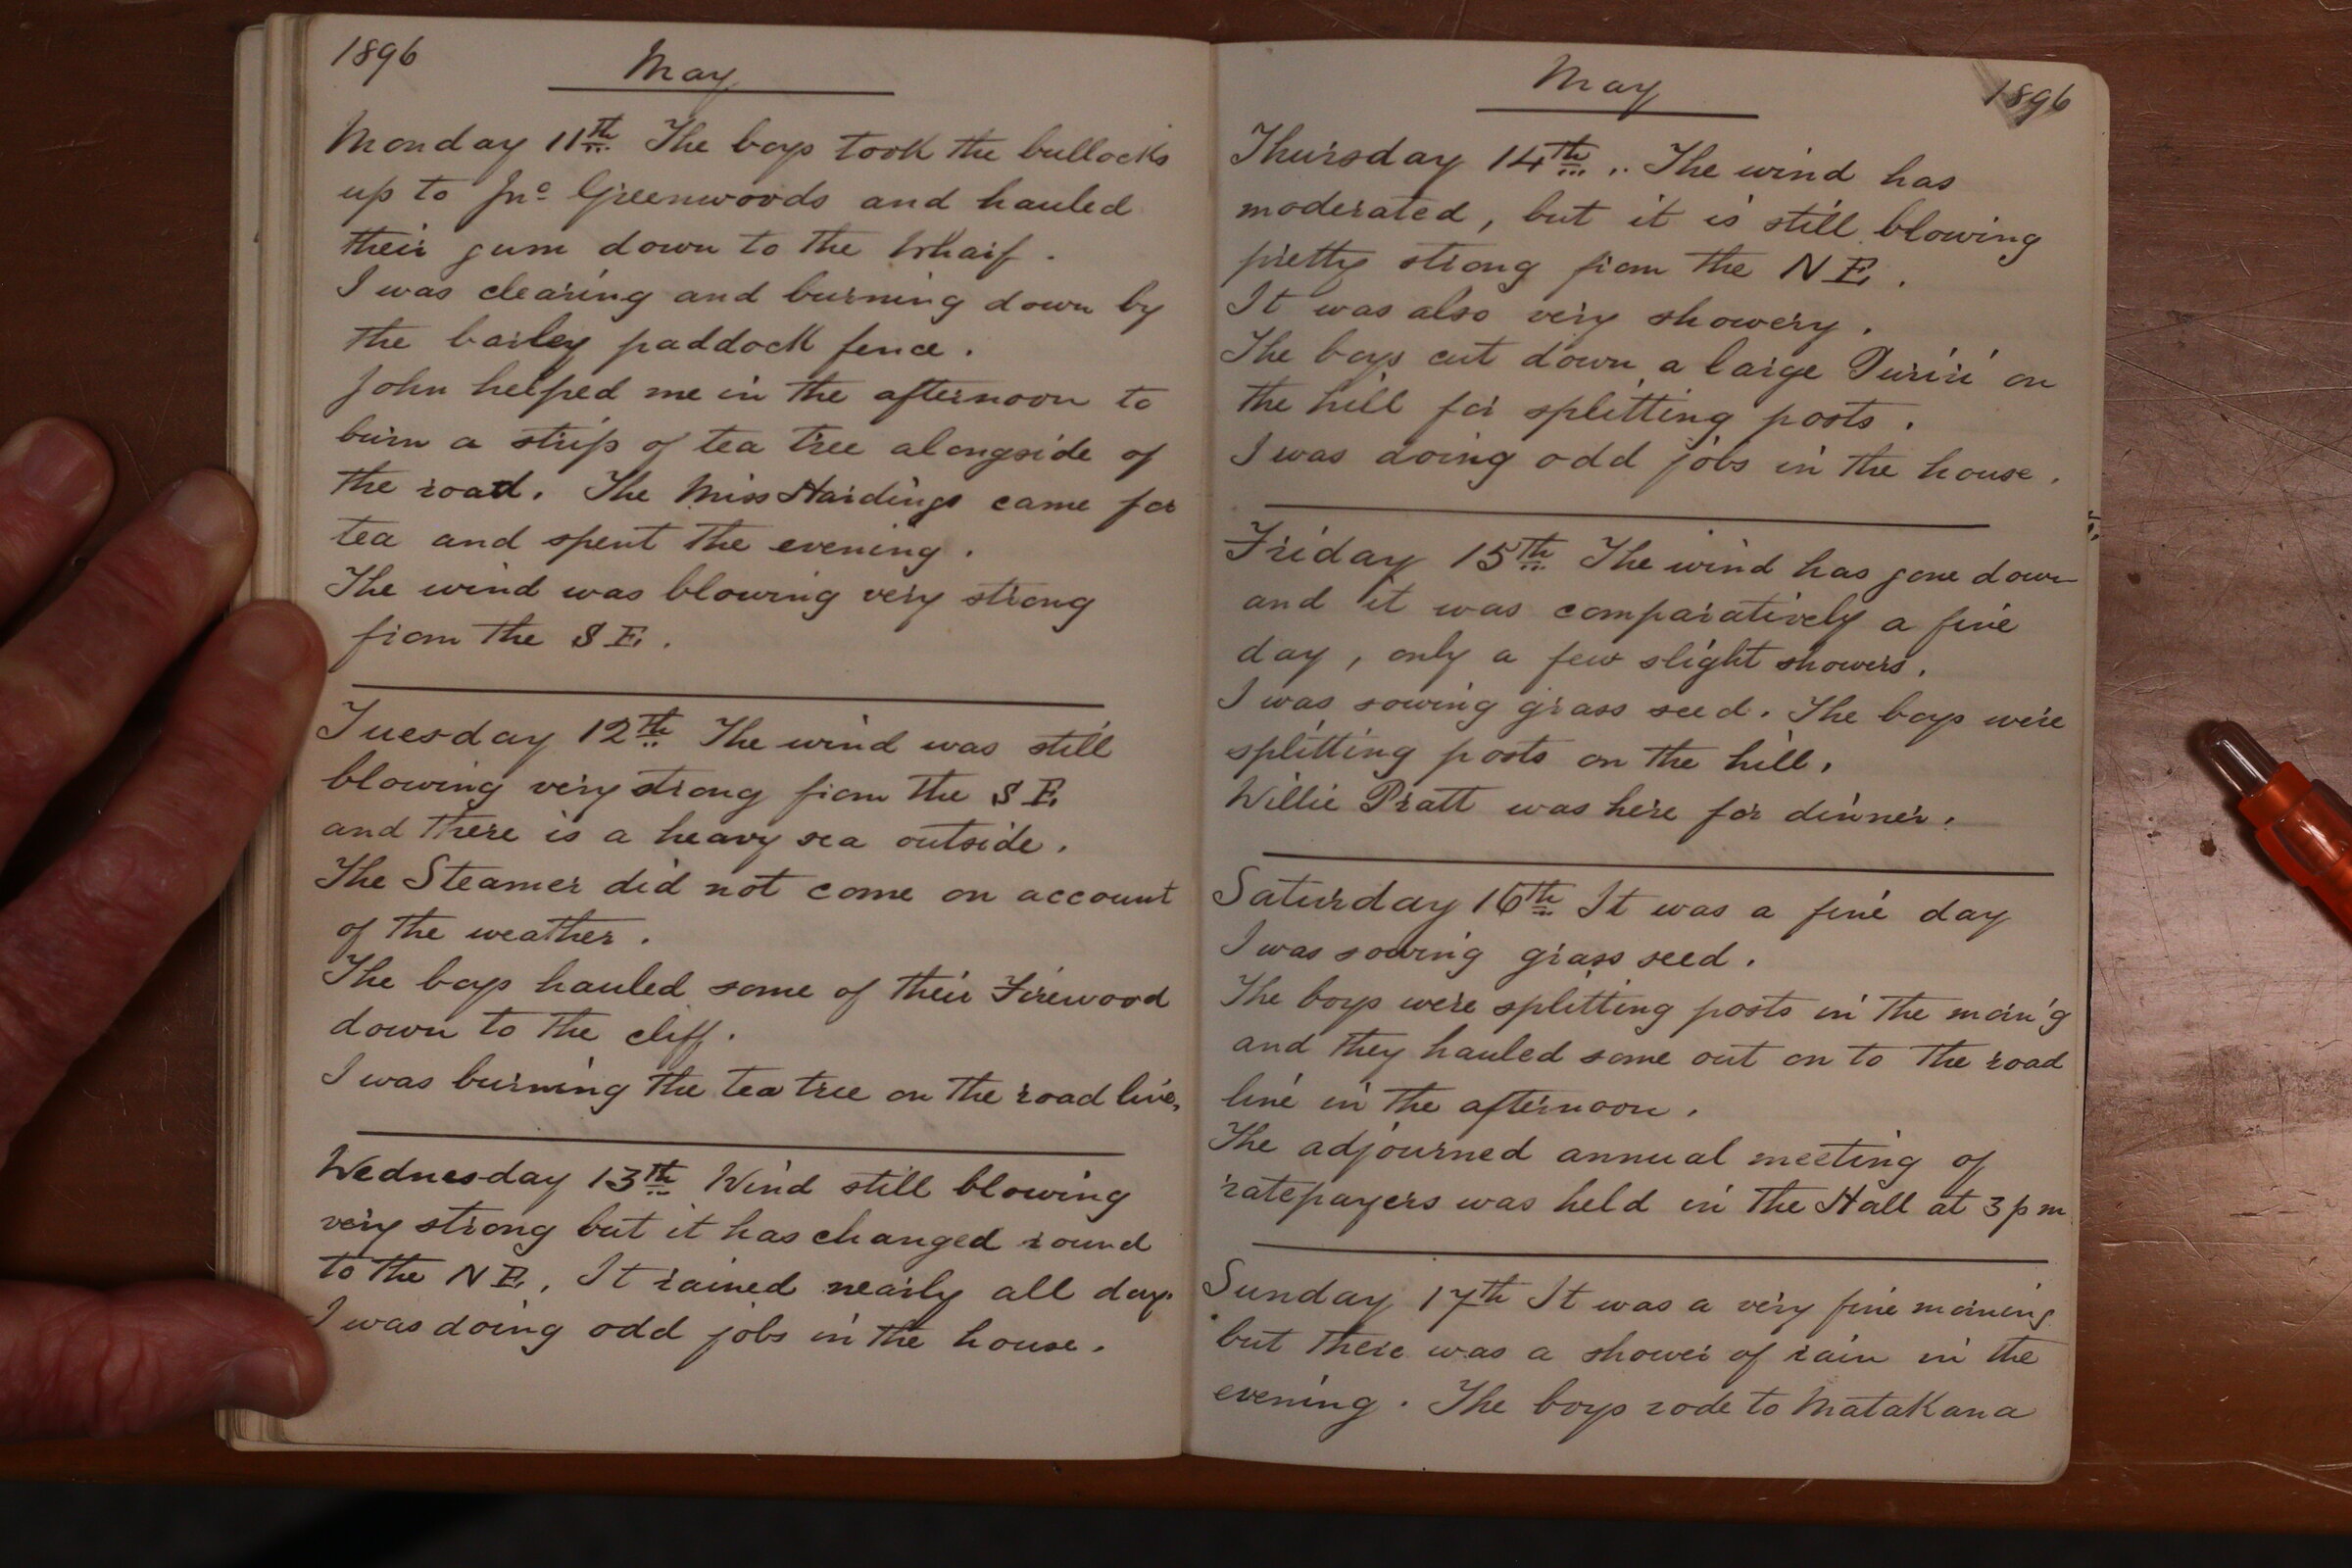 1896
May
Monday 11th The boys took the bullocks
up to Jno Greenwoods and hauled
their gum down to the Wharf.
I was clearing and burning down by
the barley paddock fence.
John helped me in the afternoon to
burn a strip of tea tree alongside of
the road. The Miss Hardings came for
tea and spent the evening.
The wind was blowing very strong
from the S E.
Tuesday 12th The wind was still
blowing very strong from the S E
and there is a heavy sea outside.
The Steamer did not come on account
of the weather.
The boys hauled some of their Firewood
down to the cliff.
I was burning the tea tree on the road line.
Wednesday 13th Wind still blowing
very strong but it has changed round
to the N E. It rained nearly all day.
I was doing odd jobs in the house.
May
1896
Thursday 14th .. The wind has
moderated, but it is still blowing
pretty strong from the N E.
It was also very showery.
The boys cut down a large Puriri on
the hill for splitting posts.
I was doing odd jobs in the house.
Friday 15th The wind has gone down
and it was comparatively a fine
day, only a few slight showers.
I was sowing grass seed. The boys were
splitting posts on the hill.
Willie Pratt was here for dinner.
Saturday 16th It was a fine day
I was sowing grass seed.
The boys were splitting posts in the morn'g
and they hauled some out on to the road
line in the afternoon.
The adjourned annual meeting of
ratepayers was held in the Hall at 3 p m
Sunday 17th It was a very fine morning
but there was a shower of rain in the
evening. The boys rode to Matakana